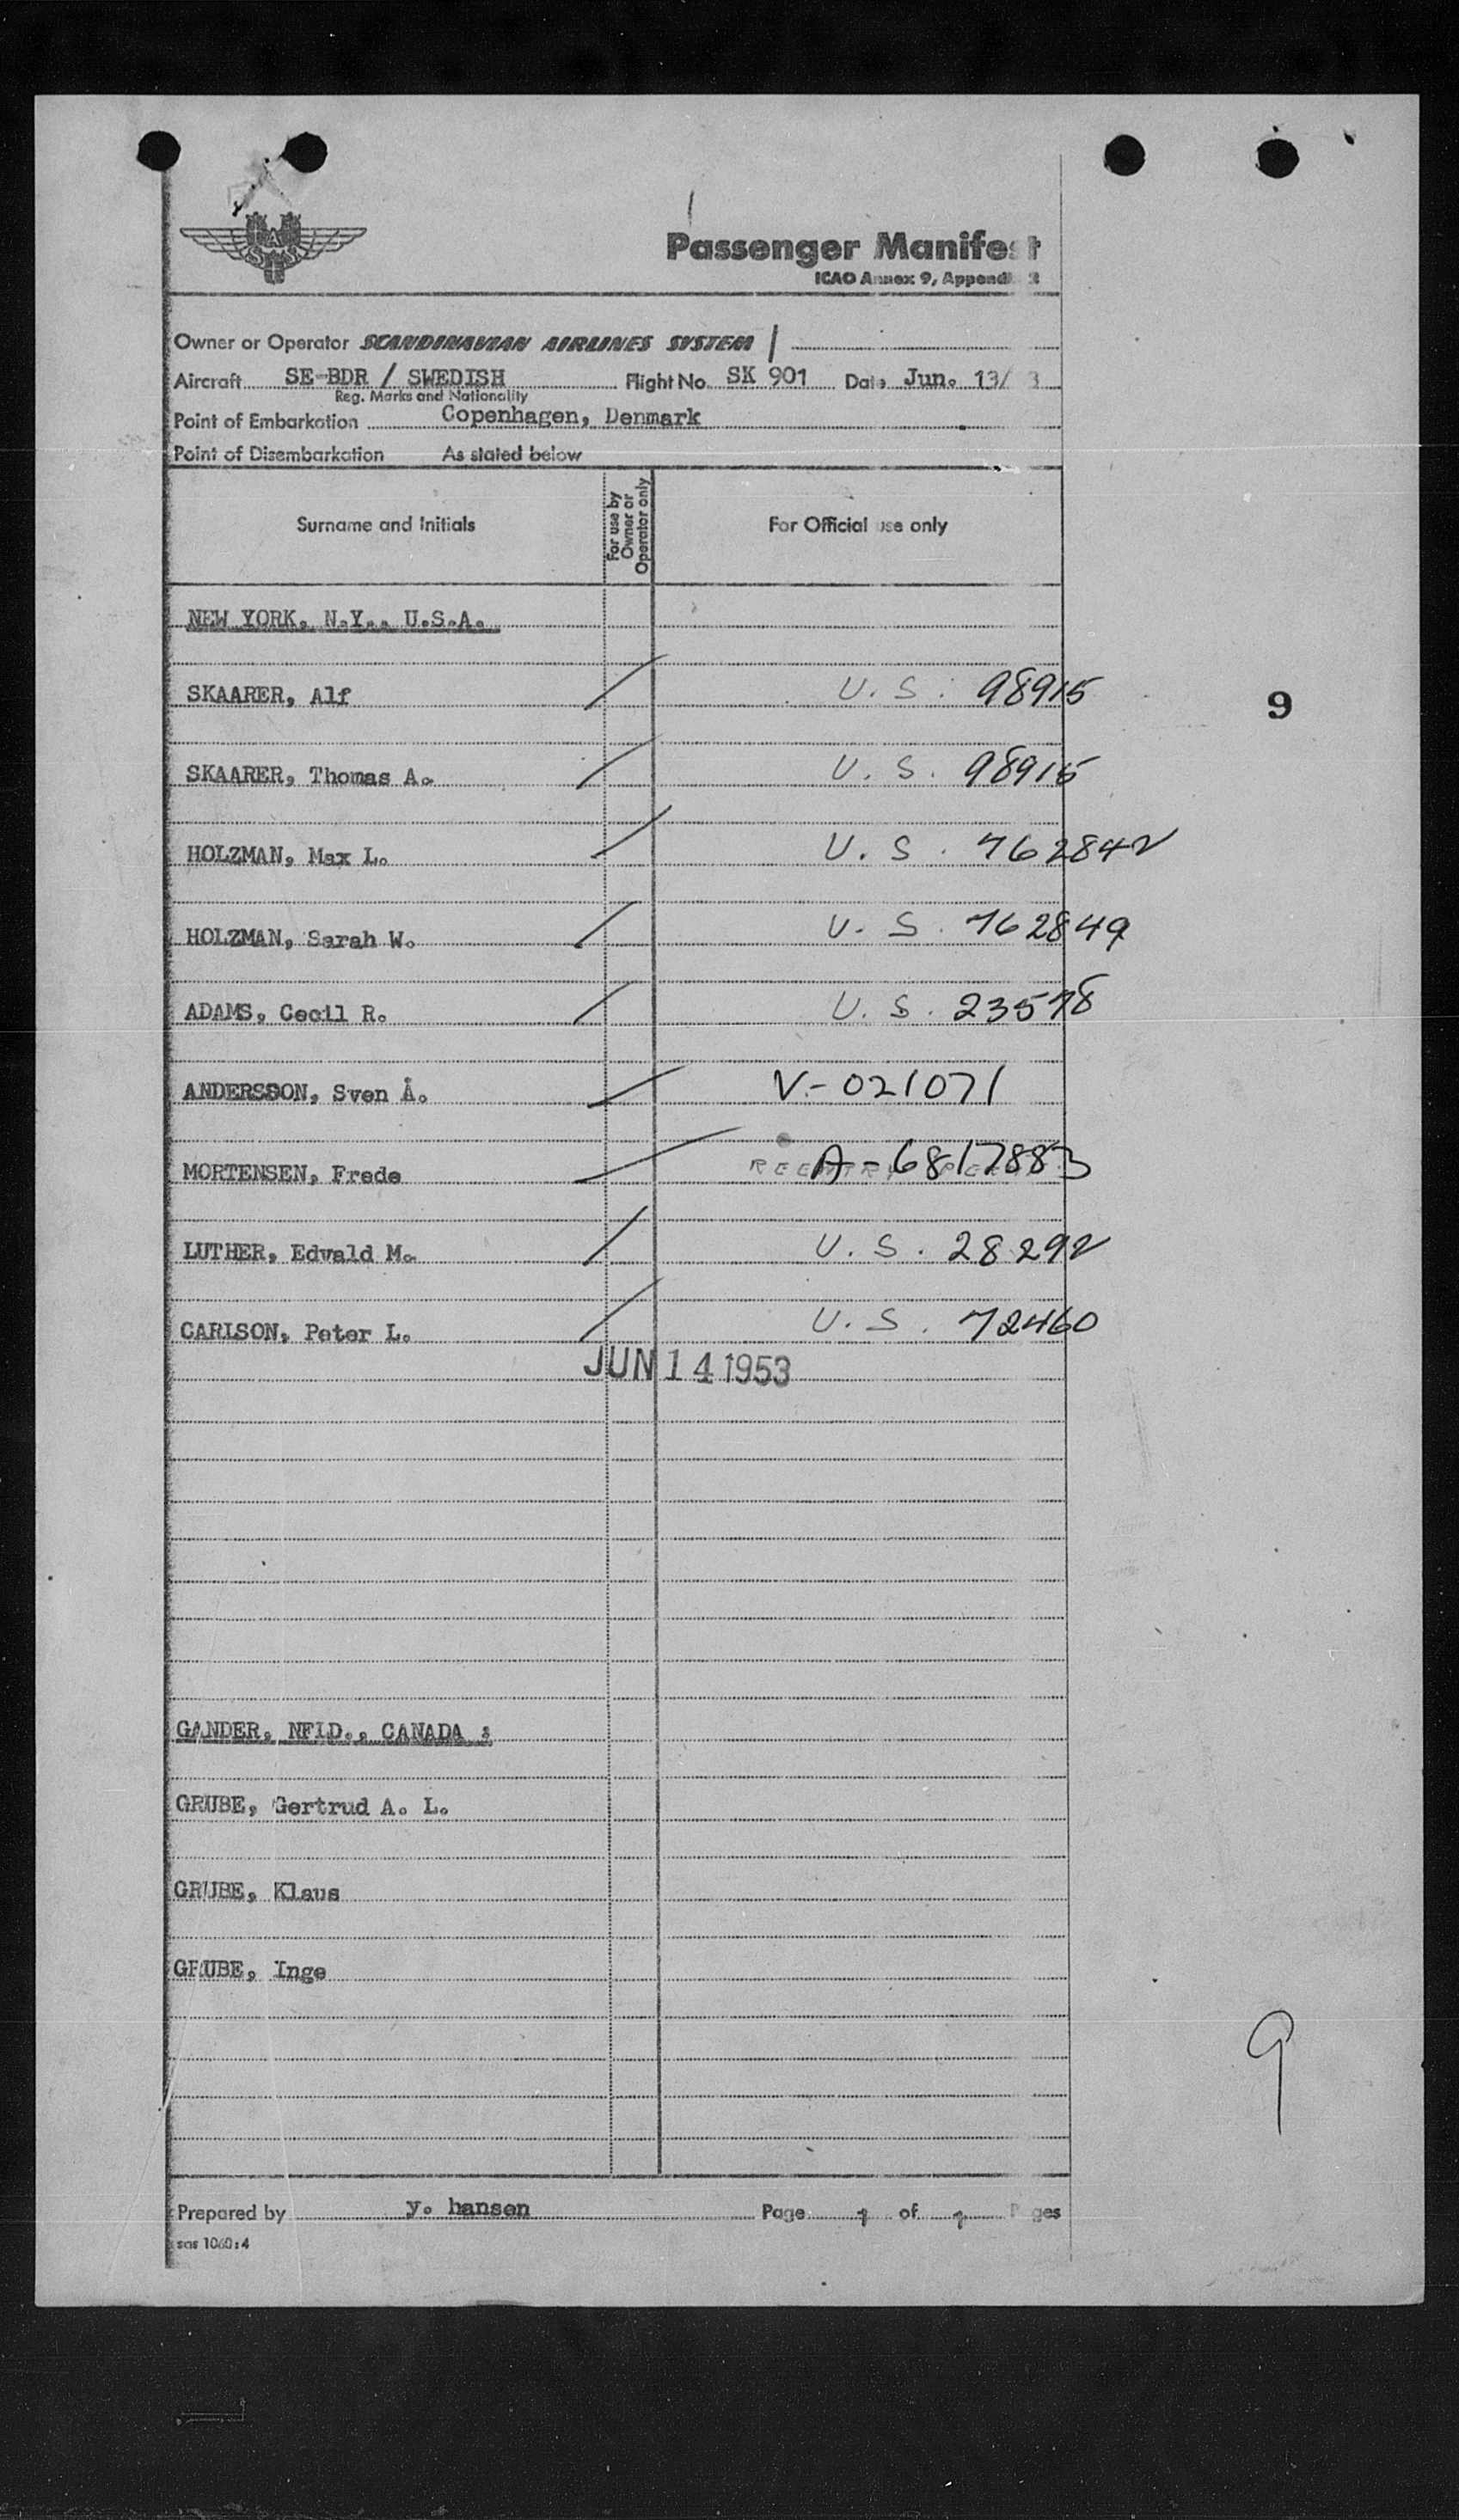 SAS
Passenger Manifest
ICAO Annex 9, Appendi 2
Owner or Operator SCANDINAVIAN AIRLINES SYSTEM
Aircraft SE-BDR / SWEDISH Flight No. SK 901 Date Jun. 13/ 3
Reg. Marks and Nationality
Point of Embarkation Copenhagen, Denmark
Point of Disembarkation As stated below
Surname and Initials For use by Owner or Operator only For Official use only
NEW YORK, N.Y., U.S.A.
SKAARER, Alf U.S. 98915
9
SKAARER, Thomas A. U.S. 98915
HOLZMAN, Max L. U.S. 762842
HOLZMAN, Sarah W. U.S. 762849
ADAMS, Cecil R. U.S. 23578
ANDERSSON, Sven Å. V-021071
MORTENSEN, Frede A-6817883
LUTHER, Edvald M. U.S. 28292
CARLSON, Peter L. U.S. 72460
JUN 14 1953
GANDER, NFLD., CANADA :
GRUBE, Gertrud A. L.
GRUBE, Klaus
GRUBE, Inge
9
Prepared by y. hansen Page of Pages
sas 1060:4